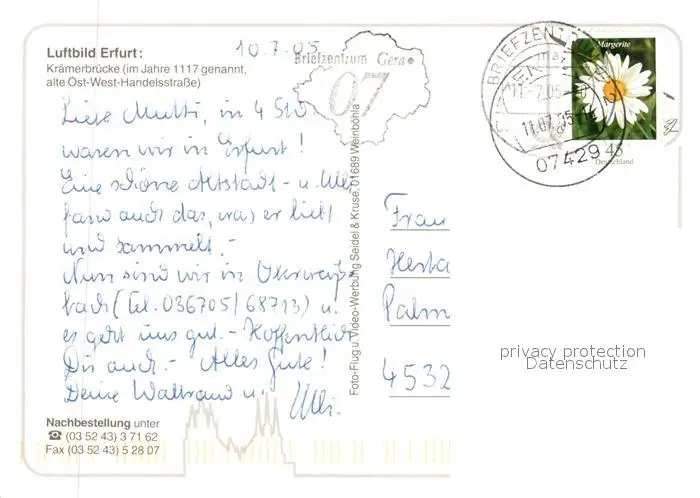 Luftbild Erfurt:
Krämerbrücke (im Jahre 1117 genannt,
alte Ost-West-Handelsstraße)
10.7.05
Liebe Mutti, in 4 Std.
waren wir in Erfurt!
Eine schöne Altstadt - u. Ulli
fand auch das, was er liebt
und sammelt.-
Nun sind wir in Oberweiß-
bach (Tel. 036705/68713) u.
es geht uns gut. - Hoffentlich
Dir auch. - Alles Gute!
Deine Waltraud u.
Ulli.
Nachbestellung unter
☎ (03 52 43) 3 71 62
Fax (03 52 43) 5 28 07
Foto-Flug u. Video-Werbung Seidel & Kruse, 01689 Weinböhla
Briefzentrum Gera
07
BRIEFZENT
11.-7.05
11.07.05
07429
Margerite
45
Deutschland
Frau
Herta
Palm
4532
privacy protection
Datenschutz